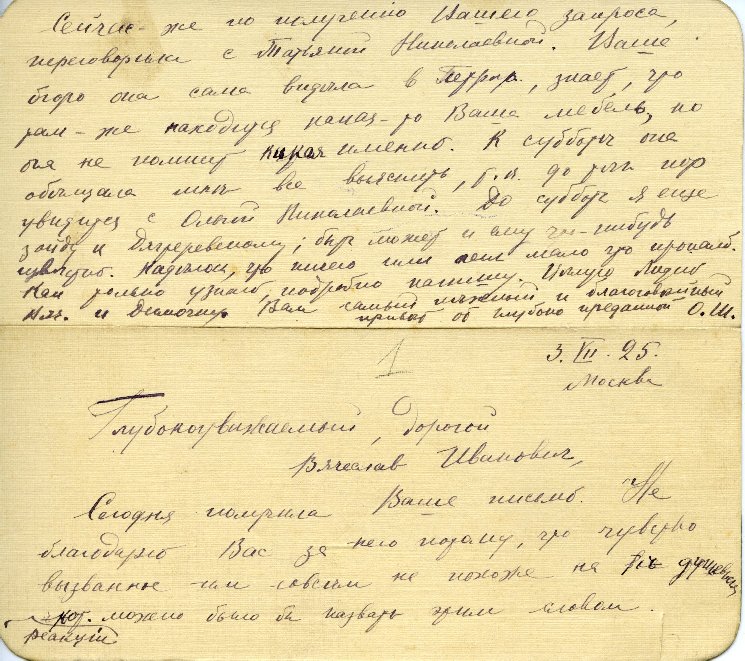 Сейчас-же по получению Вашего запроса,
переговорила с Татьяной Николаевной. Ваше
бюро она сама видела в , знает, что
там-же находится какая-то Ваша мебель, но
она не помнит какая именно. К субботе она
обещала мне все выяснить, т.к. до тех пор
увидится с Ольгой Николаевной. До субботы я еще
зайду к ; быть может и ему что-нибудь
известно. Надеюсь, что ничего или мало что пропало.
Как только узнаю, подробно напишу. Целую Лидию
и Димочку. Вам самый нежный и благоговейный
привет от глубоко преданной О.Ш.
1
3.VII.25.
Москва
Глубокоуважаемый, дорогой
Вячеслав Иванович,
Сегодня получила Ваше письмо. Не
благодарю Вас за него потому, что чувство
вызванное им совсем не похоже на те душевные
реакции
кот. можно было бы назвать этим словом.